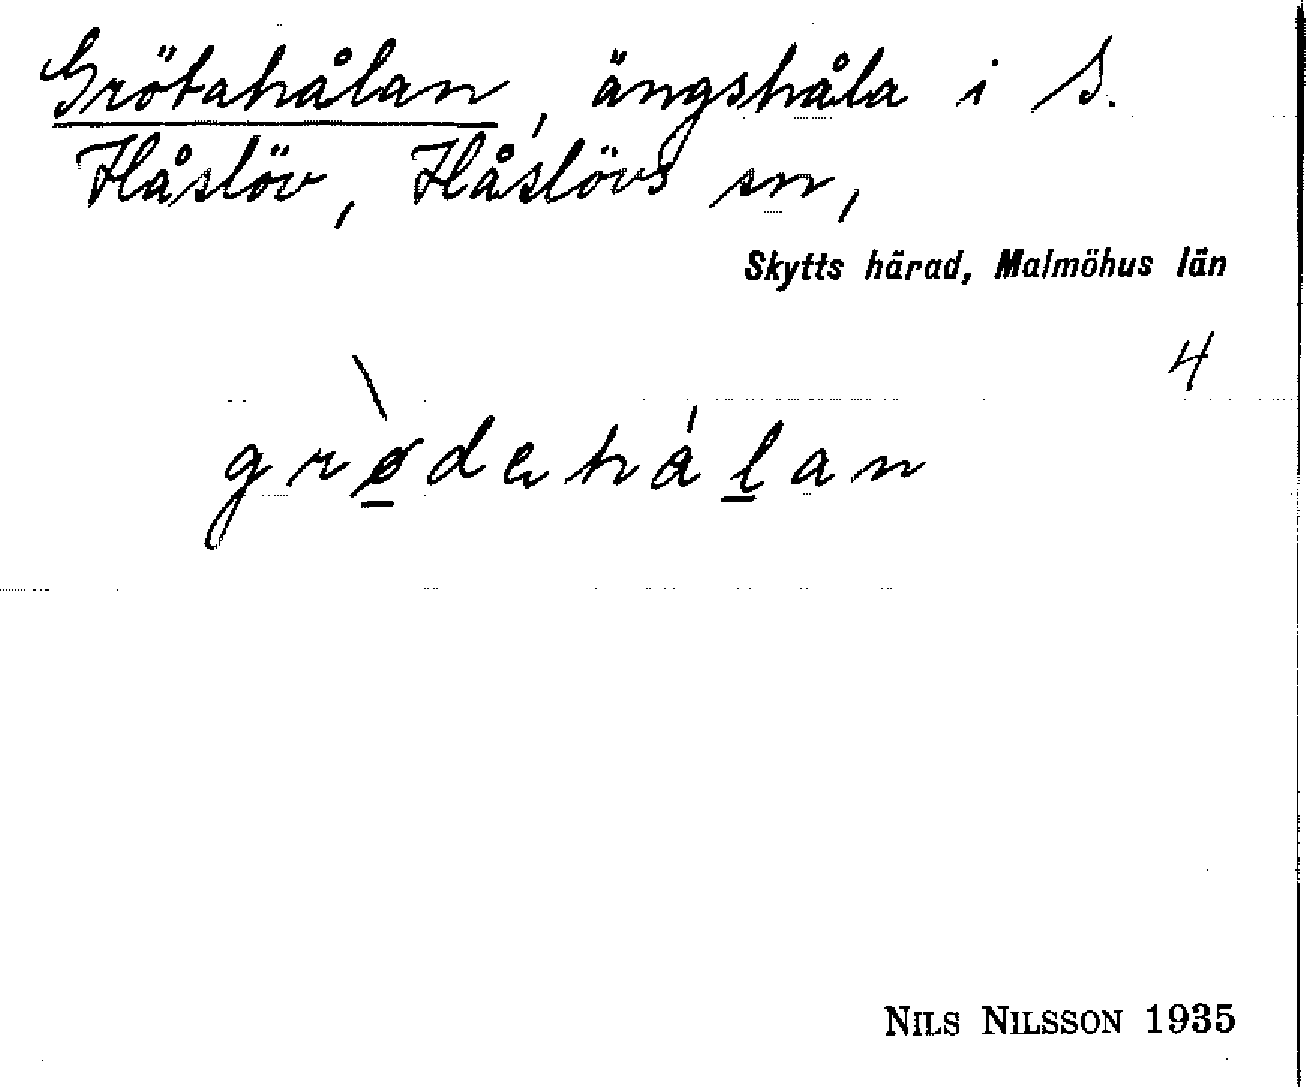 Grötahålan, ängshåla i S.
Håslöv, Håslövs sn,
Skytts härad, Malmöhus län
4
grø̱dehåḻan
NILS NILSSON 1935